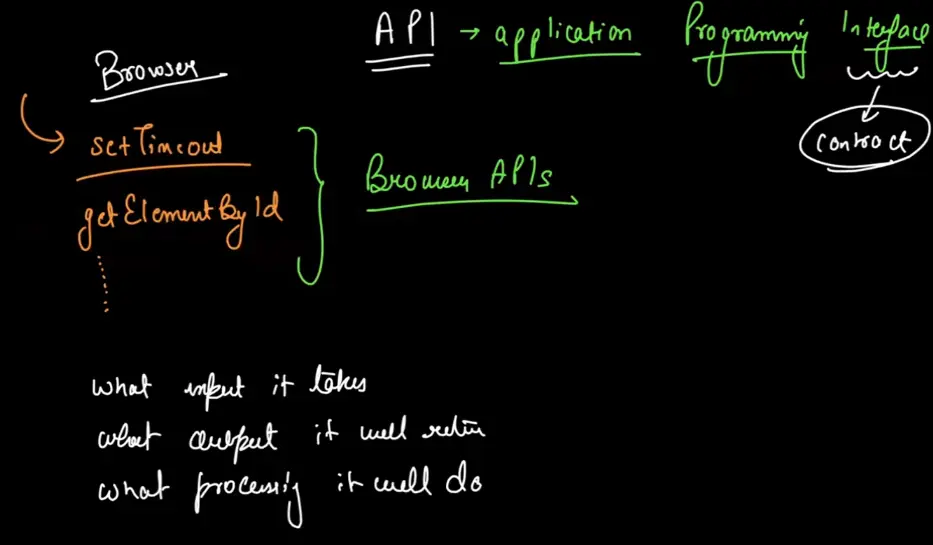 API → application Programming Interface
contract
Browser
setTimeout
getElementById
Browser APIs
what input it takes
what output it will return
what processing it will do